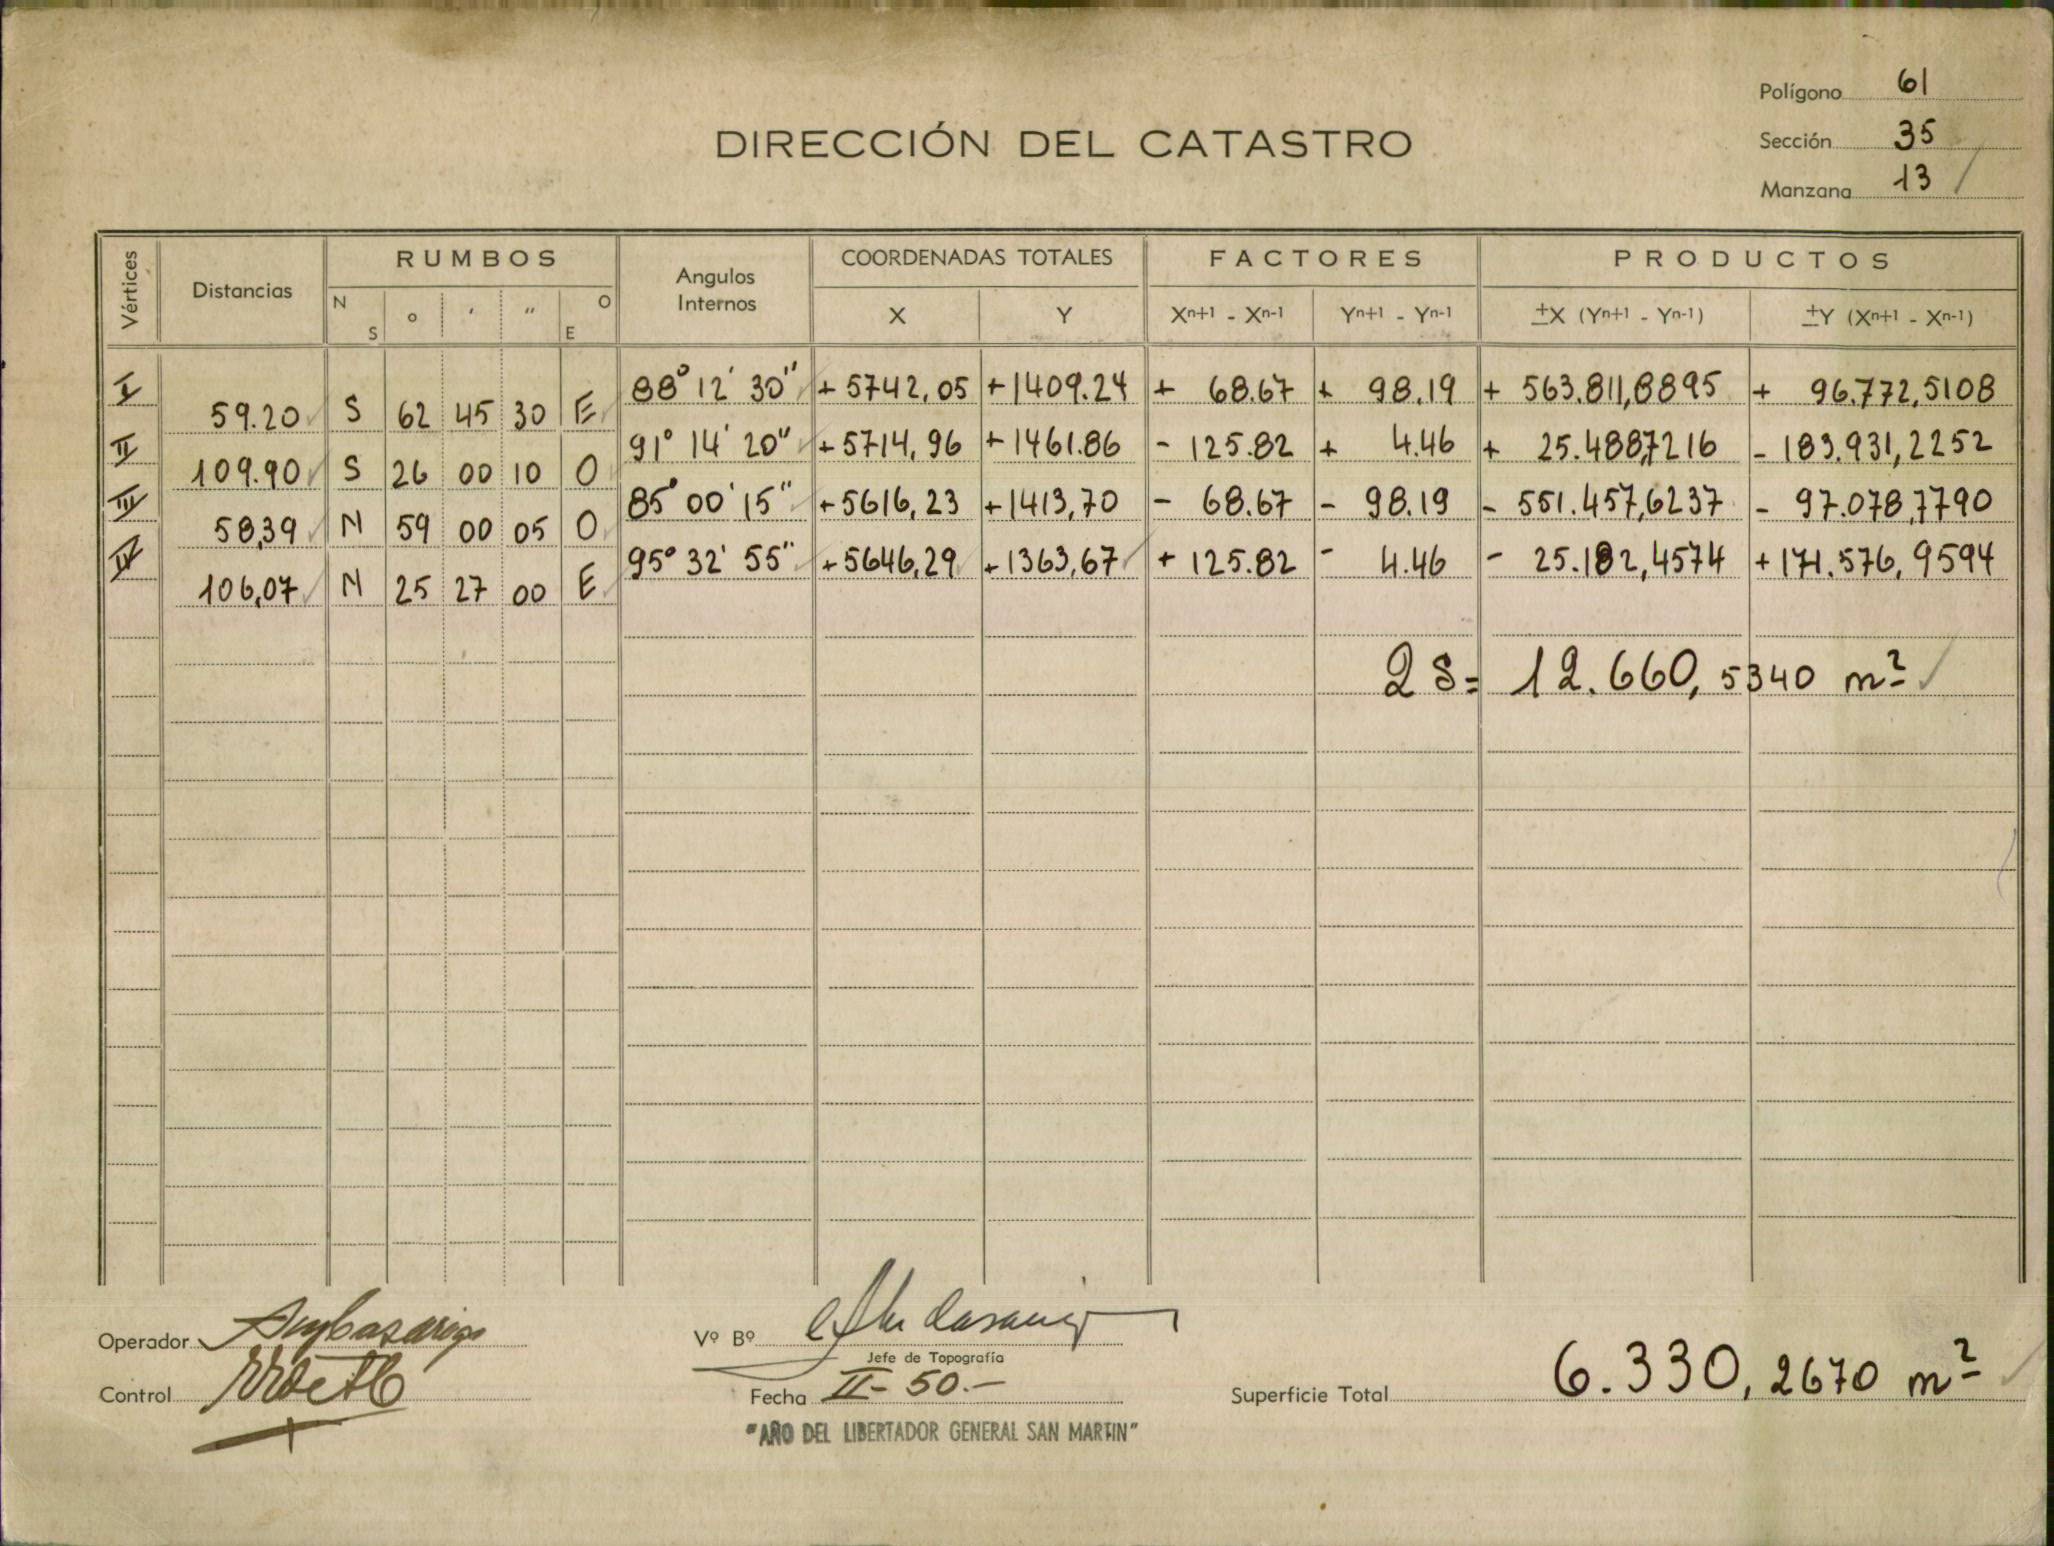 Polígono 61
DIRECCIÓN DEL CATASTRO
Sección 35
Manzana 13
Vértices Distancias RUMBOS Angulos Internos COORDENADAS TOTALES FACTORES PRODUCTOS
N S ° ' " O E X Y Xn+1 - Xn-1 Yn+1 - Yn-1 ±X (Yn+1 - Yn-1) ±Y (Xn+1 - Xn-1)
I 88° 12' 30" +5742,05 +1409.24 + 68.67 + 98.19 + 563.811,8895 + 96.772,5108
59.20 S 62 45 30 E
II 91° 14' 20" +5714,96 +1461.86 - 125.82 + 4.46 + 25.488,7216 - 183.931,2252
109.90 S 26 00 10 O
III 85° 00' 15" +5616,23 +1413,70 - 68.67 - 98.19 - 551.457,6237 - 97.078,7790
58,39 N 59 00 05 O
IV 95° 32' 55" +5646,29 +1363,67 + 125.82 - 4.46 - 25.182,4574 +171.576,9594
106,07 N 25 27 00 E
2 S= 12.660,5340 m²
Operador
Vº Bº
Jefe de Topografía
Control
Fecha II- 50.-
Superficie Total 6.330,2670 m²
"AÑO DEL LIBERTADOR GENERAL SAN MARTIN"